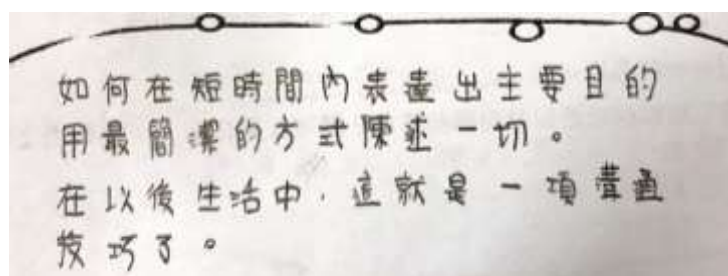 如何在短時間內表達出主要目的
用最簡潔的方式陳述一切。
在以後生活中，這就是一項溝通
技巧了。